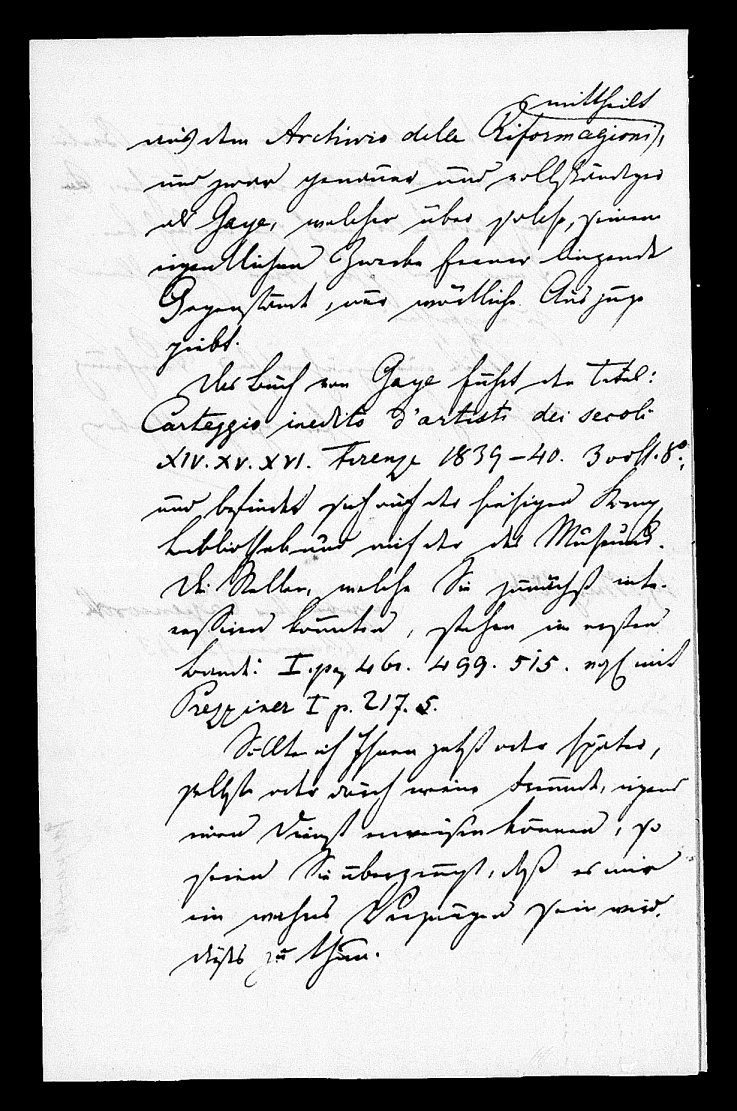 mittheilt
aus dem Archivio delle Riformagioni),
und zwar genauer und vollständiger
als Gaye, welcher über solche, seinem
eigentlichen Zwecke ferner liegende
Gegenstände, nur wörtliche Auszüge
giebt.
Das Buch von Gaye führt den Titel:
Carteggio inedito d'artisti dei secoli
XIV. XV. XVI. Firenze 1839–40. 3 voll. 8°.,
und befindet sich auf der hiesigen König.
bibliothek und auf der des Museums.
Die Stellen, welche Sie zunächst inte-
ressiren könnten, stehen im ersten
Bande: I. pag 460. 499. 515. vgl mit
Prezziner I p. 217. 5.
Sollte ich Ihnen jetzt oder später,
selbst oder durch meine Freunde, irgend
einen Dienst erweisen können, so
seien Sie überzeugt, daß es mir
ein wahres Vergnügen sein wird,
dieses zu thun.